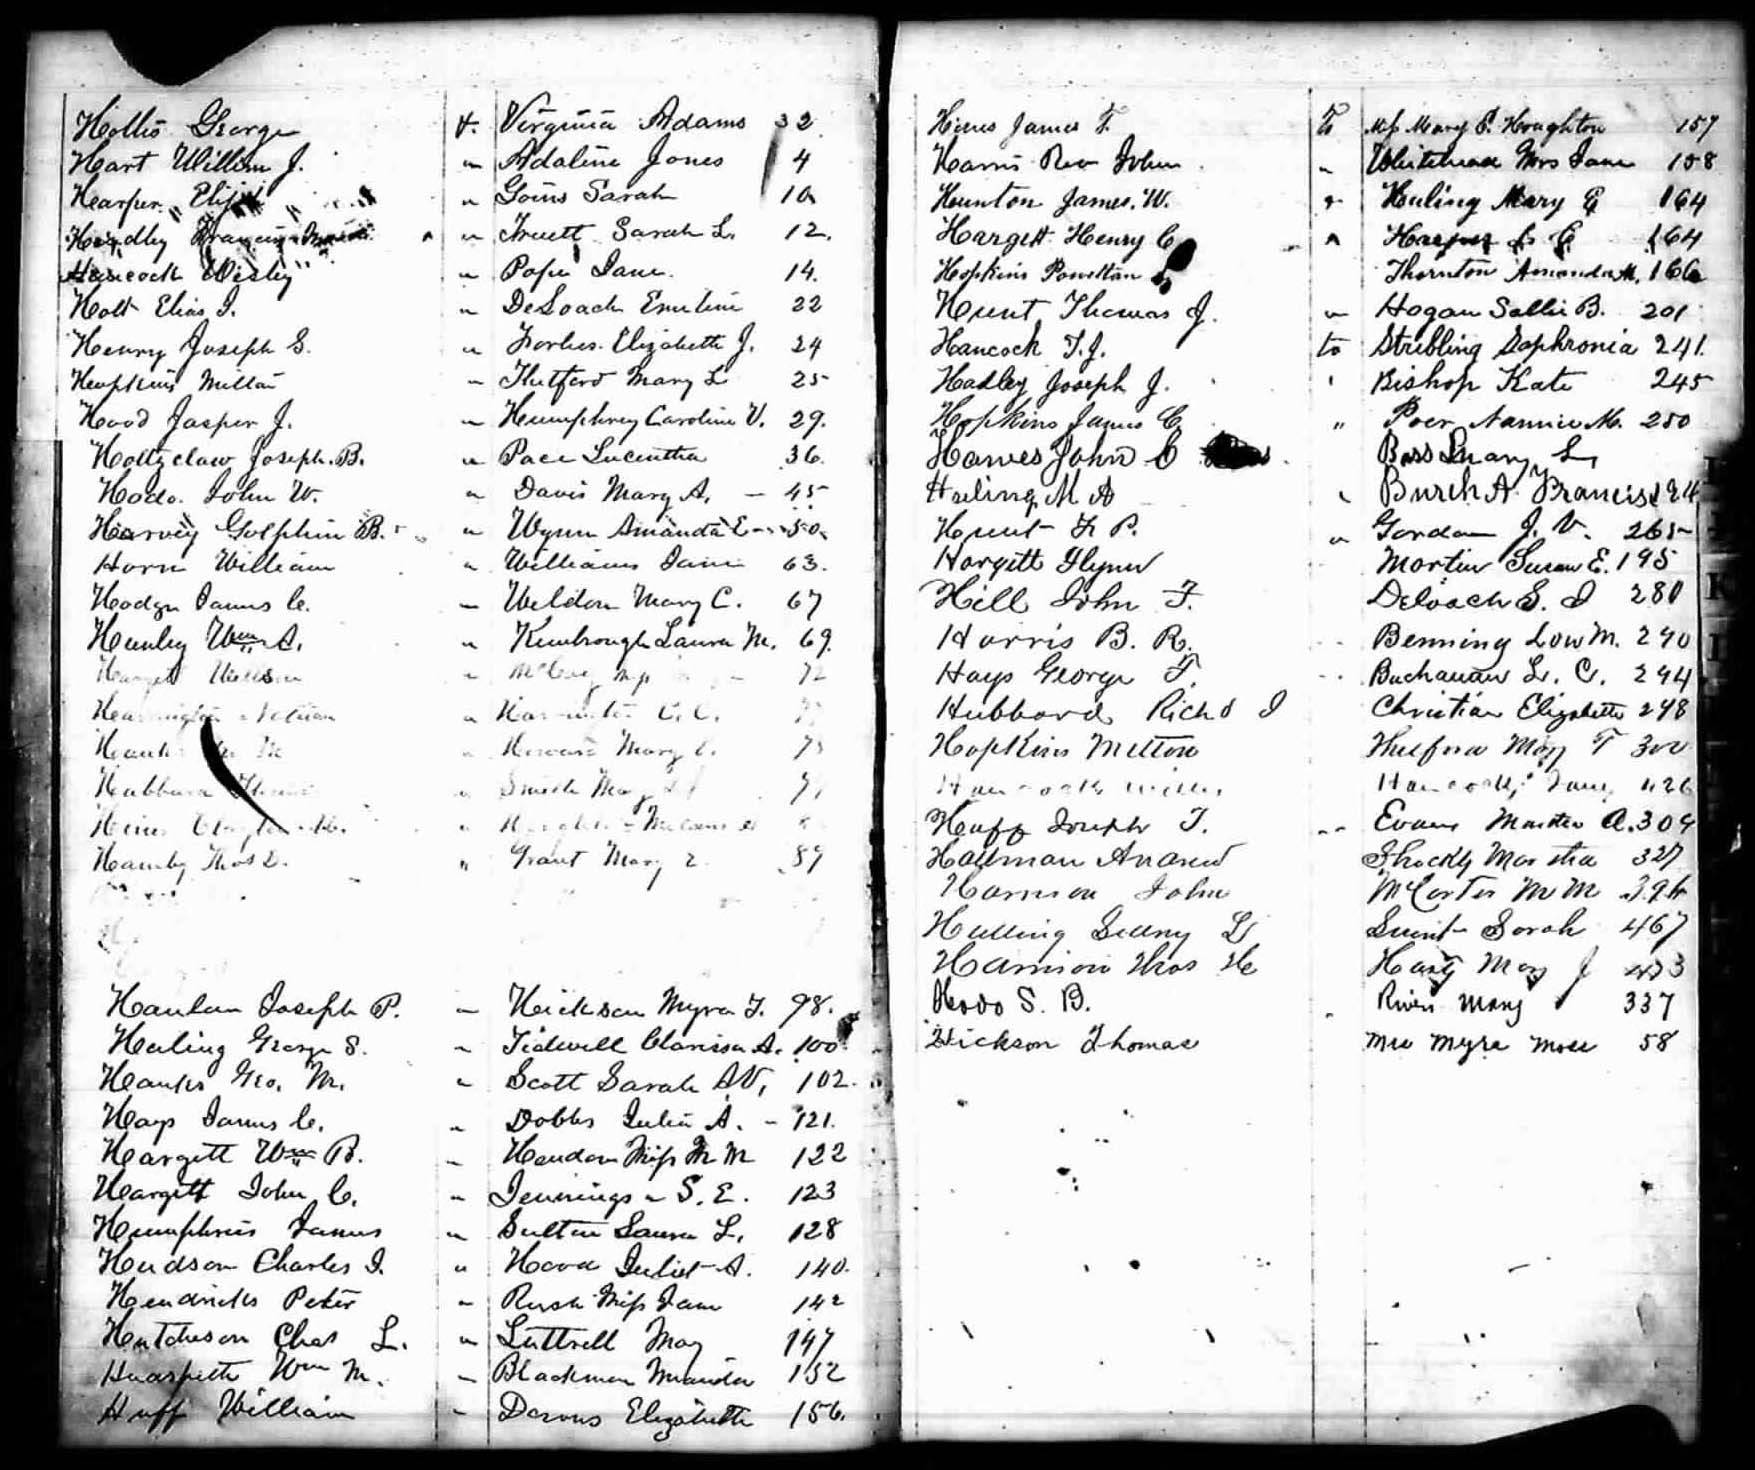 Hollis George & Virginia Adams 32
Hart William J. " Adaline Jones 4
Harper Elijah " Goins Sarah 10
Hendley Francis " Truett Sarah L. 12.
Hancock Wesley " Pope Jane 14.
Holt Elias J. " DeLoach Emeline 22
Henry Joseph G. " Forbes Elizabeth J. 24
Hopkins Milton " Thetford Mary L 25
Hood Jasper J. " Humphrey Caroline V. 29.
Holtzclaw Joseph. B. " Pace Lucintha 36.
Hodo. John W. " Davis Mary A. – 45
Harvey Golphin B. " Wynn Amanda E – 50.
Horn William " Williams Jane 63.
Hodge James C. " Weldon Mary C. 67
Hunley Wm A. " Kimbrough Laura M. 69.
Hargett William " 72
" C. C.
" Howard Mary C. 75
Hubbard Thomas " Smith Mary
Hines "
Hamby Thos L. " Grant Mary E. 89
Hanlan Joseph P. " Hickson Myra J. 98.
Huling George S. " Tidwell Clarissa A. 100.
Hanks Geo. M. " Scott Sarah A.V. 102.
Hays James C. " Dobbs Julia A. – 121.
Hargett Wm B. " Hendon Miss M M 122
Hargett John C. " Jennings S. E. 123
Humphries James " Sultan Laura L. 128
Hudson Charles J. " Hood Juliet A. 140.
Hendricks Peter " Rush Miss Jane 142
Hutcheson Chas L. " Luttrell May 147
Hudspeth Wm M. " Blackmon Miranda 152
Huff William " Elizabeth 156.
Hines James T. To Miss Mary P. Houghton 157
Harris Rev John " Whitehead Mrs Jane 158
Hunton James. W. " Huling Mary E 164
Hargett Henry C " Harper L C 164
Hopkins Powettan Thornton Amanda M. 166
Hunt Thomas J. " Hogan Sallie B. 201
Hancock T. J. to Stribling Sophronia 241.
Hadley Joseph J. " Bishop Kate 245
Hopkins James C " Poer Nannie M. 250
Hawes John C Bass Mary L
Huling M A " Burch A Francis 294
Hunt F P. " Gordon J. V. 265
Hargett Flynn Martin Susan E. 195
Hill John F. DeLoach S. J 280
Harris B. R. " Benning Lou M. 290
Hays George T. " Buchanan L. C. 294
Hubbard Richd J Christian Elizabeth 298
Hopkins Milton Thetford May T 300
Hancock Willis Hancock, Fanny 426
Huff Joseph T. " Evans Martha A. 309
Hallman Andrew Shockly Martha 327
Harrison John McCarter M M
Hulling Sidney L Sarah 467
Harrison Thos H Hasty May J
Hodo S. B. " Rivers Mary 337
Hickson Thomas Mrs Myra Moss 58